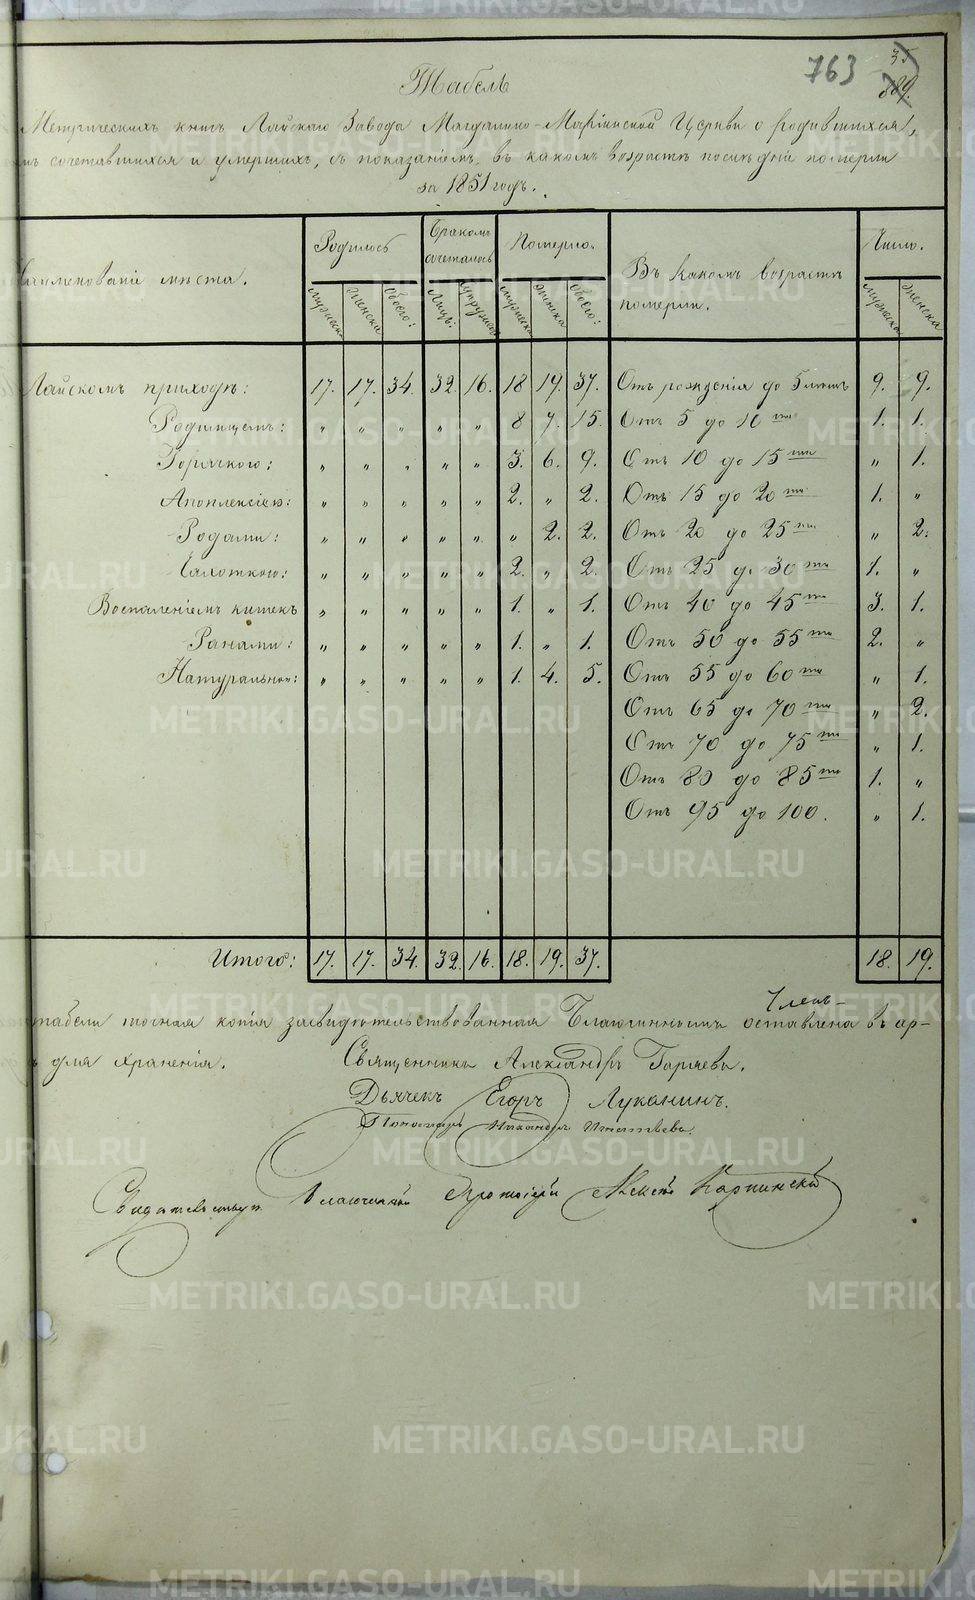 763
35
889.
Табель
Метрическихъ книгъ Лайскаго Завода Магдалино-Маріинской Церкви о родившихся,
сочетавшихся и умершихъ, съ показаніемъ, въ какомъ возрастѣ послѣдніе померли
за 1851 годъ.
Наименованіе мѣста. Родилось Бракомъ сочеталось Померло. Въ какомъ возрастѣ померли. Число.
Мужеска Женска Обоего: Лицъ: Супружес Мужеска Женска Обоего: Мужеска Женска
Лайскомъ приходѣ: 17. 17. 34. 32. 16. 18 19. 37. Отъ рожденія до 5 лѣтъ 9. 9.
Родимцемъ: „ „ „ „ „ 8 7. 15. Отъ 5 до 10ти 1. 1.
Горячкою: „ „ „ „ „ 3. 6. 9. Отъ 10 до 15ти „ 1.
Апоплексіею: „ „ „ „ „ 2. „ 2. Отъ 15 до 20ти 1. „
Родами: „ „ „ „ „ „ 2. 2. Отъ 20 до 25ти „ 2.
Чахоткою: „ „ „ „ „ 2. „ 2. Отъ 25 до 30ти 1. „
Воспаленіемъ кишекъ „ „ „ „ „ 1. „ 1. Отъ 40 до 45ти 3. 1.
Ранами: „ „ „ „ „ 1. „ 1. Отъ 50 до 55ти 2. „
Натуральною: „ „ „ „ „ 1. 4. 5. Отъ 55 до 60ти „ 1.
Отъ 65 до 70ти „ 2.
Отъ 70 до 75ти „ 1.
Отъ 80 до 85ти 1. „
Отъ 95 до 100. „ 1.
Итого: 17. 17. 34. 32. 16. 18. 19. 37. 18. 19.
табели точная копія засвидѣтельствованная Благочиннымъ оставлена въ ар-
для храненія. Священникъ Александръ Горяевъ.
Дьячекъ Егоръ Луканинъ.
Пономарь Никандръ Игнатьевъ.
Свидѣтельствуетъ Благочинный Протоіерей Алексѣй Карпинскій
METRIKI.GASO-URAL.RU